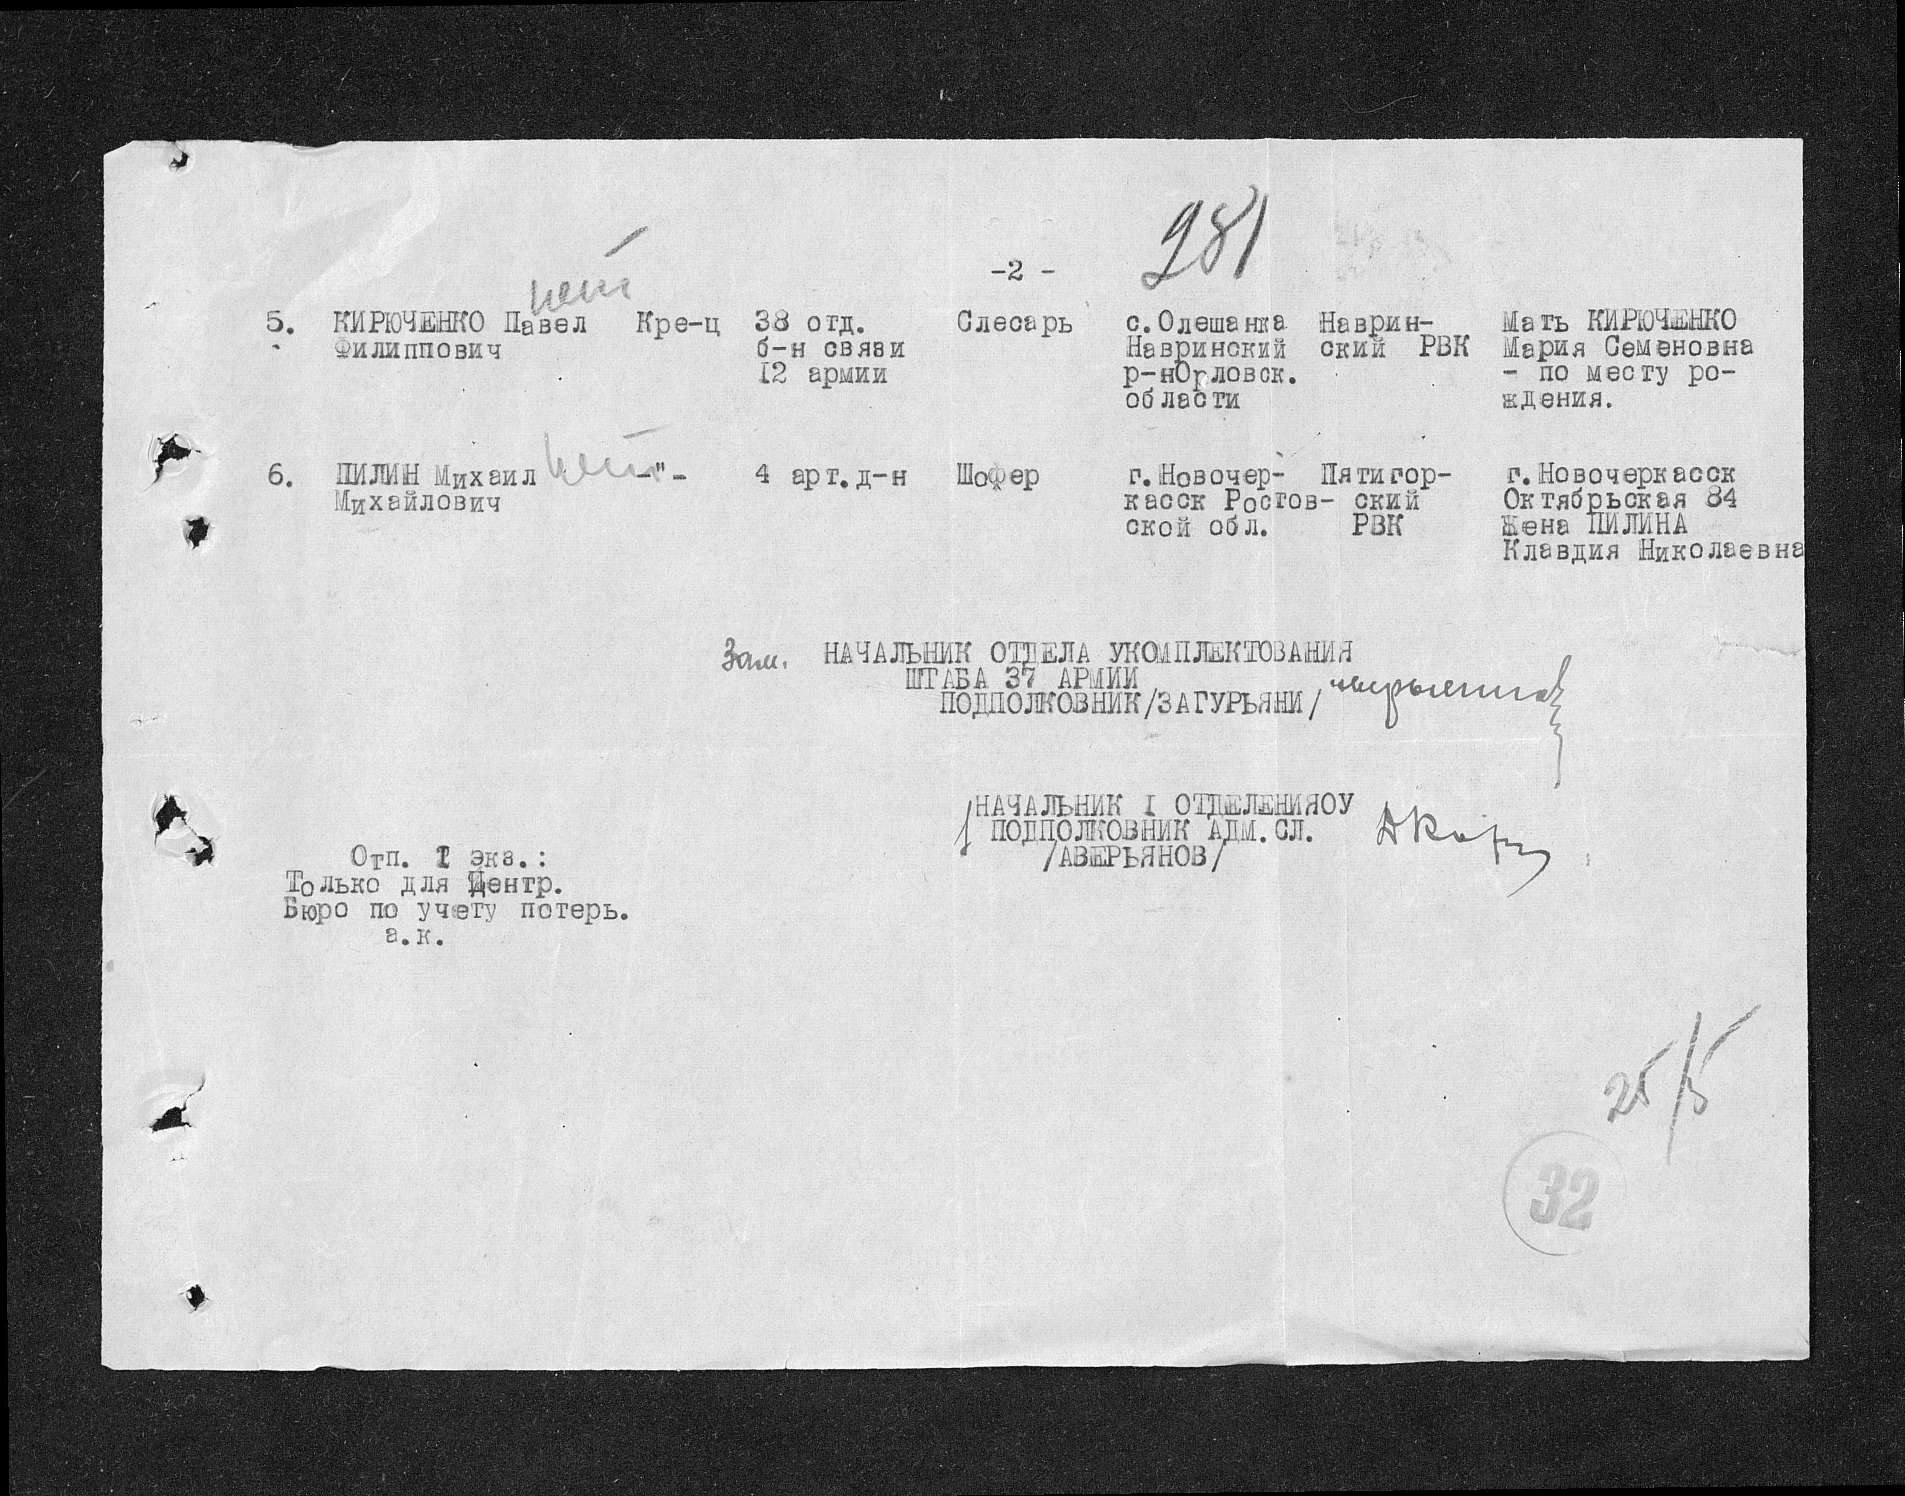 281
-2 -
нет
5. КИРЮЧЕНКО Павел Кре-ц 38 отд. Слесарь с.Олешанка Наврин- Мать КИРЮЧЕНКО
Филиппович б-н связи Навринский ский РВК Мария Семеновна
12 армии р-нОрловск. - по месту ро-
области ждения.
нет
6. ПИЛИН Михаил -"- 4 арт.д-н Шофер г.Новочер- Пятигор- г.Новочеркасск
Михайлович касск Ростов- ский Октябрьская 84
ской обл. РВК Жена ПИЛИНА
Клавдия Николаевна
Зам. НАЧАЛЬНИК ОТДЕЛА УКОМПЛЕКТОВАНИЯ
ШТАБА 37 АРМИИ
ПОДПОЛКОВНИК/ЗАГУРЬЯНИ/
НАЧАЛЬНИК I ОТДЕЛЕНИЯОУ
ПОДПОЛКОВНИК АДМ.СЛ.
/АВЕРЬЯНОВ/
Отп. 1 экз.:
Только для Центр.
Бюро по учету потерь.
а.к.
25/5
32